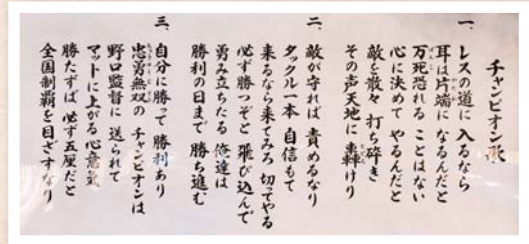 チャンピオン歌
一、
レスの道に 入るなら
耳は片端に なるんだと
万死恐れる ことはない
心に決めて やるんだと
敵を散々 打ち砕き
その声天地に 轟けり
二、
敵が守れば 責めるなり
タックル一本 自信もて
来るなら来てみろ 切ってやる
必ず勝つぞと 飛び込んで
勇み立ちたる 俺達は
勝利の日まで 勝ち進む
三、
自分に勝って 勝利あり
忠勇無双の チャンピオンは
野口監督に 送られて
マットに上がる 心意気
勝たずば 必ず五厘だと
全国制覇を 目ざすなり